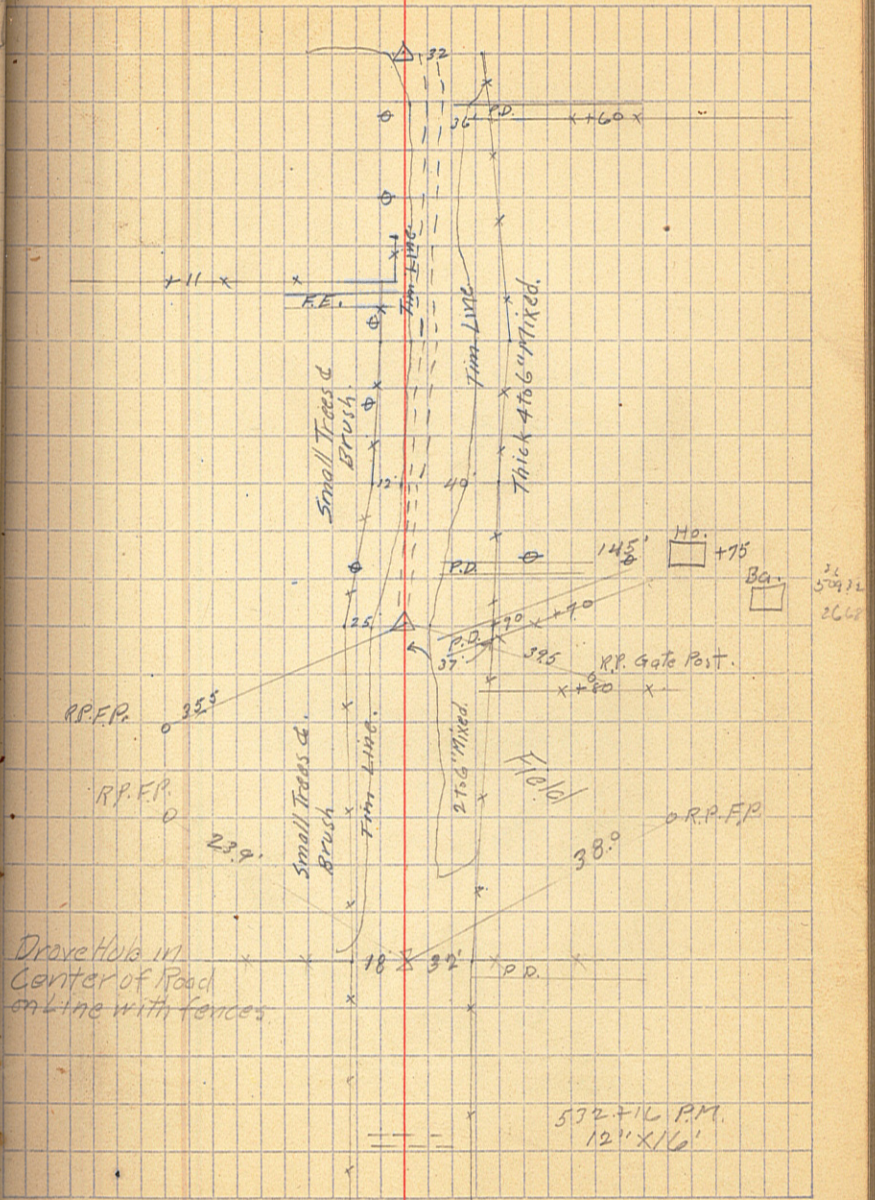 32
P.D.
36'
+60
+11
F.E.
Tim Line.
Tim Line
Thick 4 to 6" Mixed.
Small Trees &
Brush.
12'
40'
Ho.
+75
145'
P.D.
Ba.
25'
+70
+70
P.D.
37'
39.5
R.P. Gate Post.
+80
35.5
R.P.F.P.
Small Trees &
Brush
Tim Line.
2 to 6" Mixed.
Field
R.P.F.P.
R.P.F.P.
23.9.
38.0
Drove Hub in
Center of Road
on Line with fences
18'
32'
P.D.
532+16 P.M.
12" X 16'